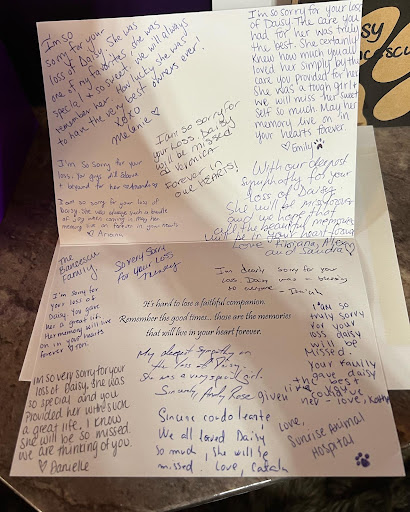 I'm so
sorry for your
loss of Daisy, she was
one of my favorites, she was
special & so sweet. we will always
remember her. How lucky she was
to have the very best owners ever!
xoxo
Melanie ♡
I'm so sorry for your loss
of Daisy. The care you
had for her was truly
the best. She certainly
knew how much you all
loved her simply by the
care you provided for her.
She was a tough girl &
we will miss her sweet
self so much. May her
memory live on in
your hearts forever.
♡ Emily
I am so sorry for
your loss Daisy
will be missed
Veronica
Forever in
our hearts!
I'm so sorry for your
loss. You guys did above &
beyond for her
I am so sorry for your loss of
Daisy. She was always such a bundle
of joy when coming in. May her
memory live on forever in your hearts
♡ Ariana
With our deepest
sympathy for the
loss of Daisy.
She will be missed
and we hope that
all the beautiful memories
will fill your heart
Love
and Sandra ♡
The
Francescu
Family,
I'm so sorry for
your loss of
Daisy. You gave
her a great life.
Her memory will live
on in your hearts
forever
So very sorry
for your loss
I'm deeply sorry for your
loss. Daisy was a
so
It's hard to lose a faithful companion.
Remember the good times... those are the memories
that will live in your heart forever.
I am so
truly sorry
for your
loss, daisy
will be
missed.
Your family
gave daisy
the best
life
given
her - love, Kathy
My deepest sympathy on
the loss of Daisy.
She was a very special girl.
Sincerely, Rose
I'm so very sorry for your
loss of Daisy. She was
so special and you
provided her with such
a great life. I know
she will be so missed.
we are thinking of you.
♡ Danielle
Sincere condoleance,
We all loved Daisy
so much, she will be
missed. Love,
Love,
Sunrise Animal
Hospital